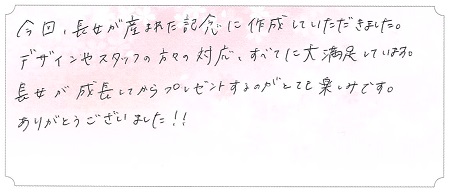 今回、長女が産まれた記念に作成していただきました。
デザインやスタッフの方々の対応、すべてに大満足しています。
長女が成長してからプレゼントするのがとても楽しみです。
ありがとうございました!!